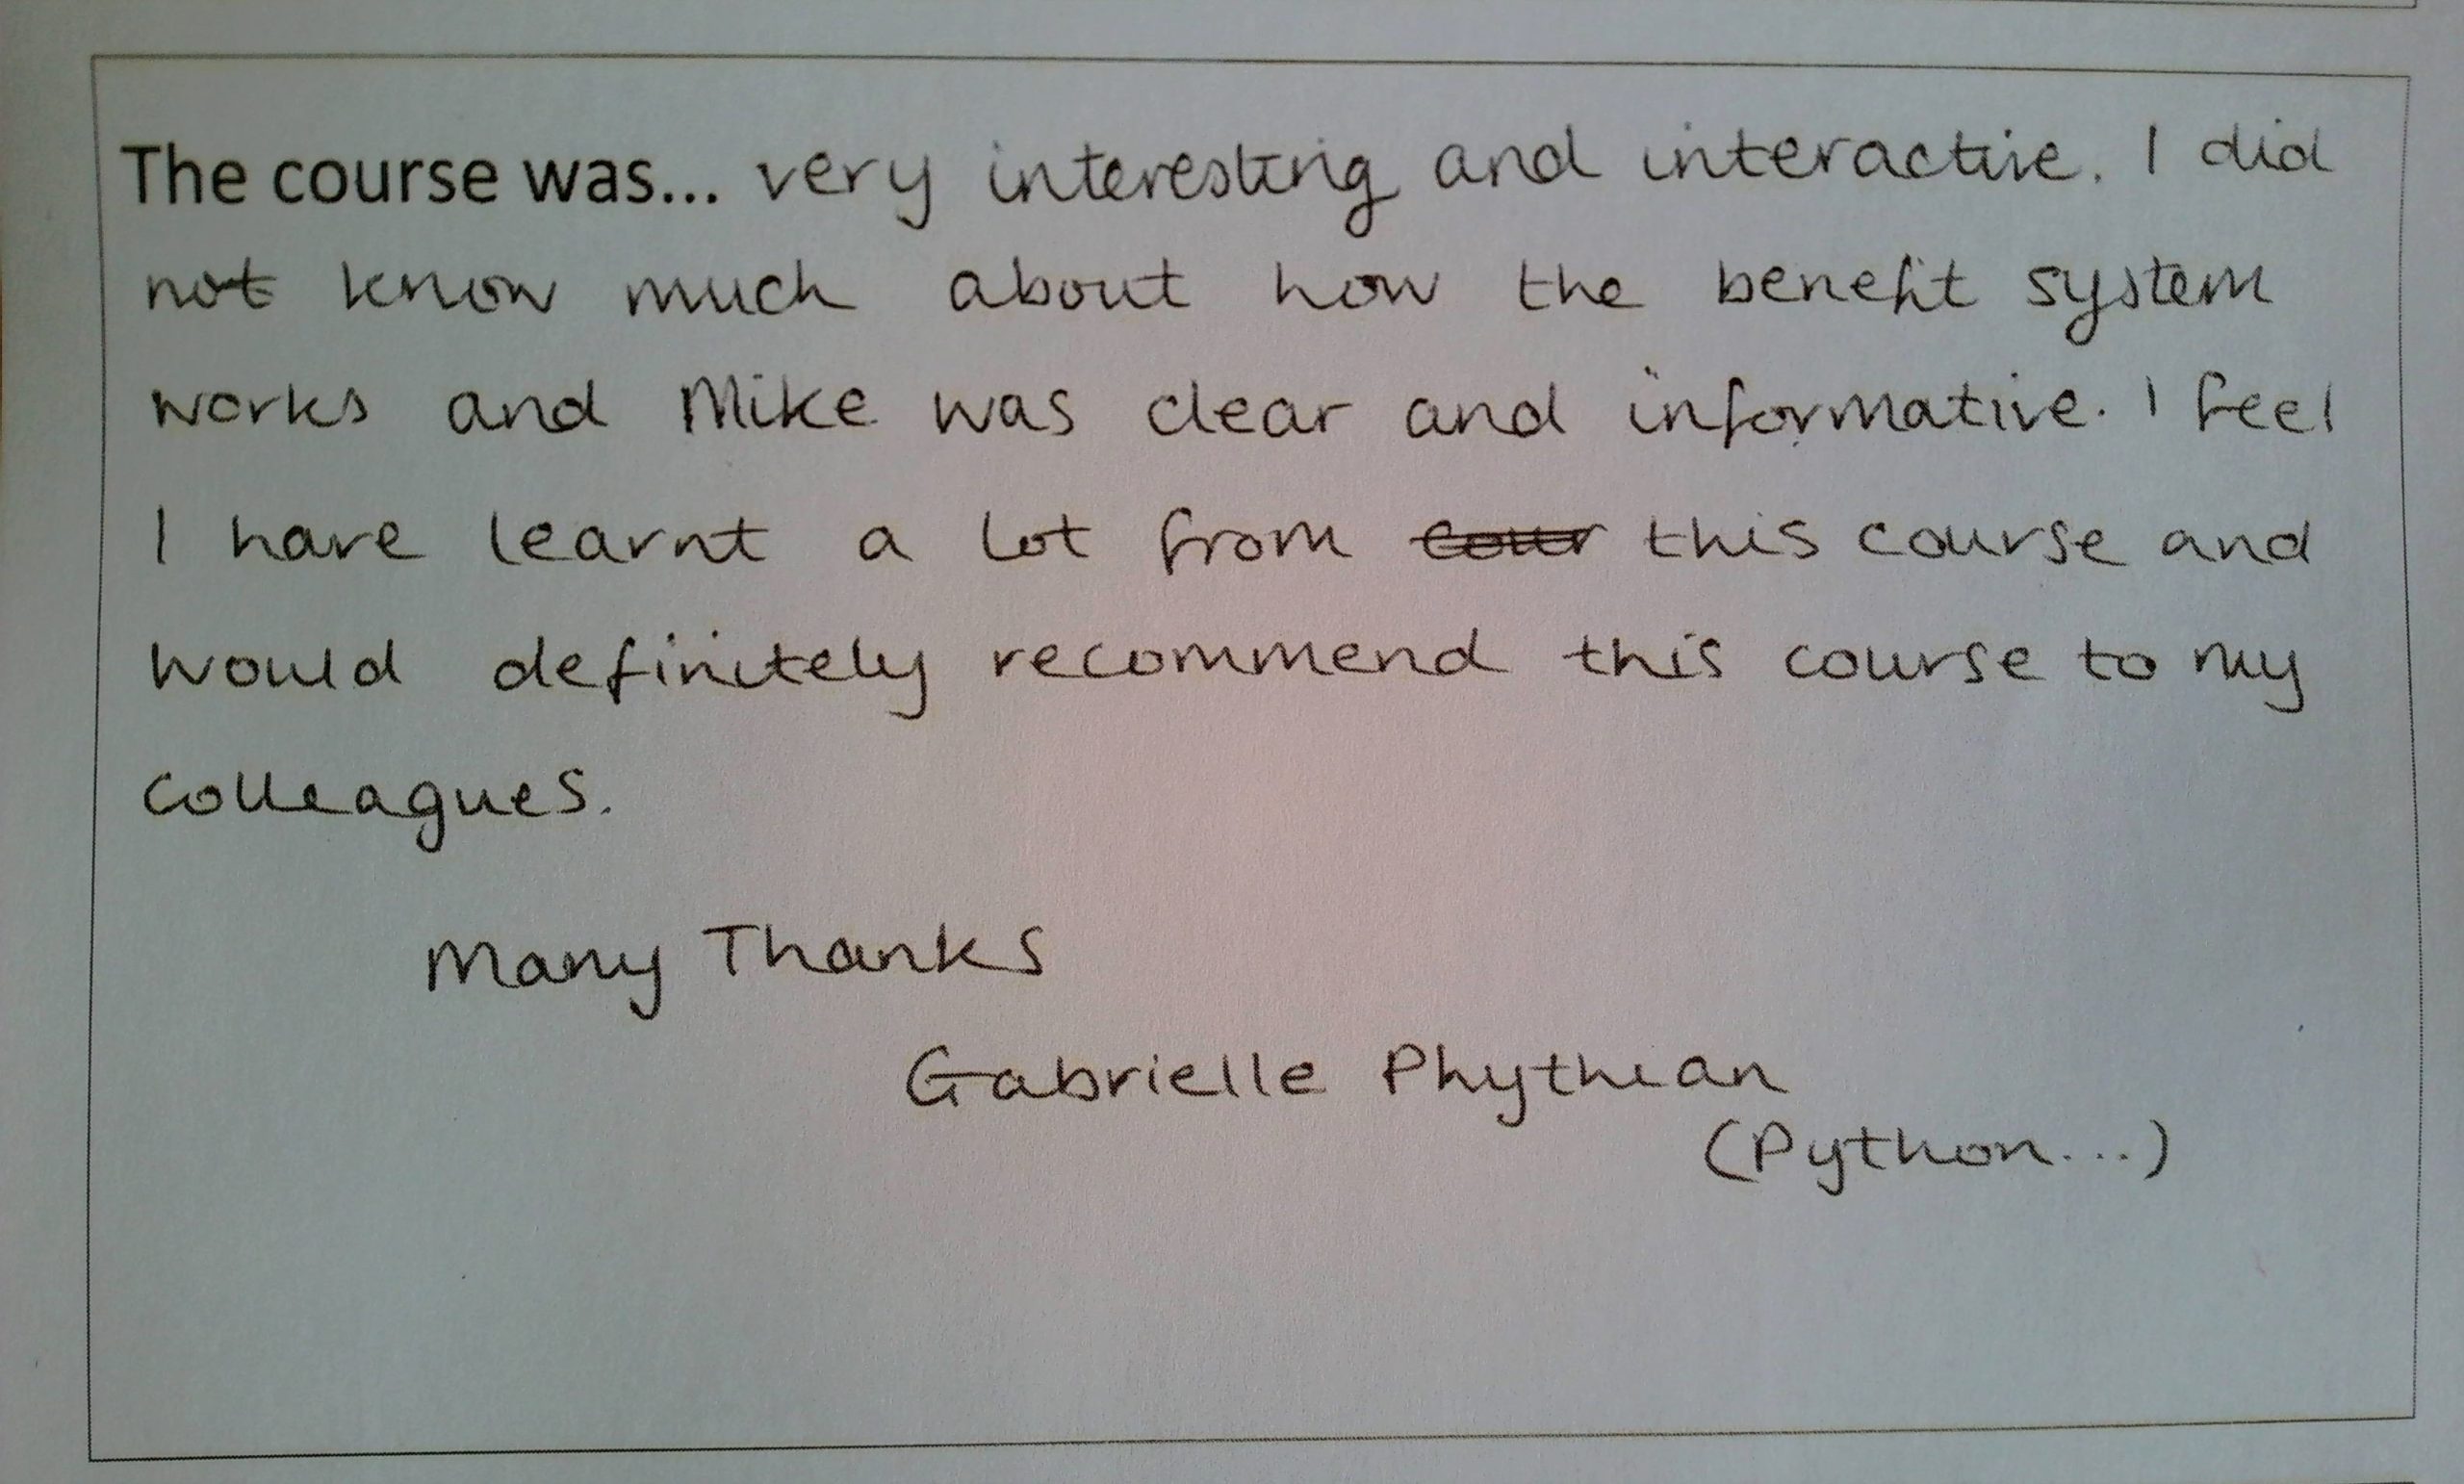 The course was... very interesting and interactive. I did
not know much about how the benefit system
works and Mike was clear and informative. I feel
I have learnt a lot from cour this course and
would definitely recommend this course to my
colleagues.
Many Thanks
Gabrielle Phythian
(Python...)